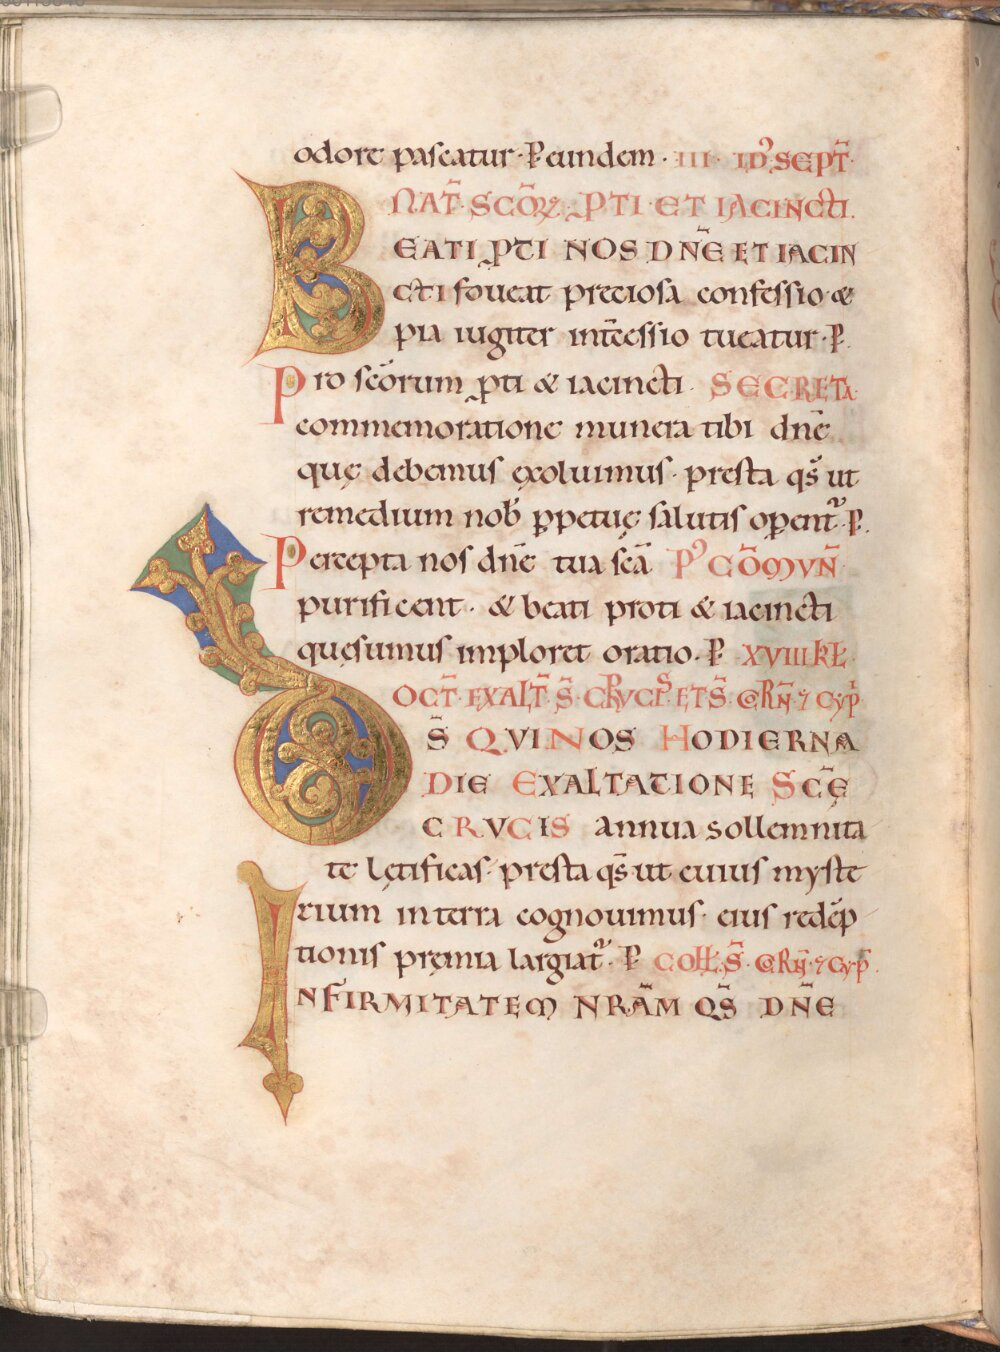 odore pascatur · P eundem · III · ID' SEPT̄ ·
NAT̄ · SCŌꝜ · PTI · ET IACINCTI.
BEATI PTI NOS DN̄E ET IACIN
cti foueat preciosa confessio · &
pia iugiter int̄cessio tueatur · P.
Pro sc̄orum pti & iacincti · SECRETA
commemoratione munera tibi dn̄e
quę debemus exoluimus · presta qs̄ ut
remedium nob̄ ꝑpetuę salutis oꝑent᷑ · P.
Percepta nos dn̄e tua sc̄a P' CŌMVN̄
purificent · & beati proti & iacincti
quęsumus imploret oratio · P XVIII KŁ
OCT̄ · EXALT̄ · S̄ · CRVCIS · ET S̄ · CORN̄ · ⁊ CYP̄
DS̄ QVI NOS HODIERNA
DIE EXALTATIONE SCĒ
CRVCIS annua sollemnita
te lętificas · presta qs̄ ut cuius myste
rium in terra cognouimus · eius redēp
tionis pręmia largiat᷑ · P COLL̄ · S̄ · CORN̄ · ⁊ CYP̄ ·
INFIRMITATEM NRĀM QS̄ DN̄E